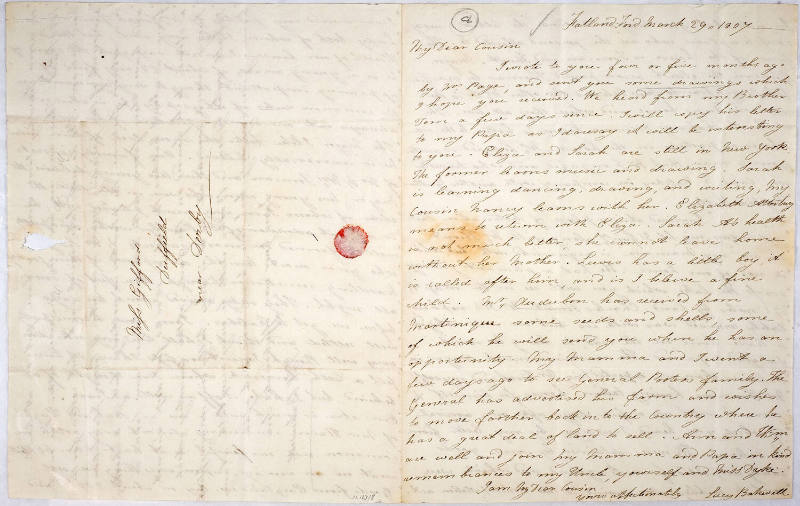 a
Fatland Ford March 29th 1807
My Dear Cousin
I wrote to you four or five months ago
by Mr. Page, and sent you some drawings which
I hope you received. We heard from my Brother
Tom a few days since. I will copy his letter
to my Papa as I daresay it will be interesting
to you. Eliza and Sarah are still in New York
The former learns music and drawing. Sarah
is learning dancing, drawing, and writing, My
Cousin Nancy learns with her. Elizabeth Atterbury
means to return with Eliza. Sarah A's health
is not much better, she cannot leave home
without her Mother. Lewis has a little boy it
is called after him, and is I believe a fine
child. Mr. Audubon has received from
Martinique some seeds and shells, some
of which he will send you when he has an
opportunity. My Mamma and I went a
few days ago to see General Porters family. The
General has advertised his farm and wishes
to move farther back into the Country where he
has a great deal of land to sell. Ann and Wm.
are well and join my Mamma and Papa in kind
remembrances to my Uncle, yourself and Miss Dyke.
I am My Dear Cousin
yours affectionately Lucy Bakewell
Miss Gifford
Duffield
near Derby